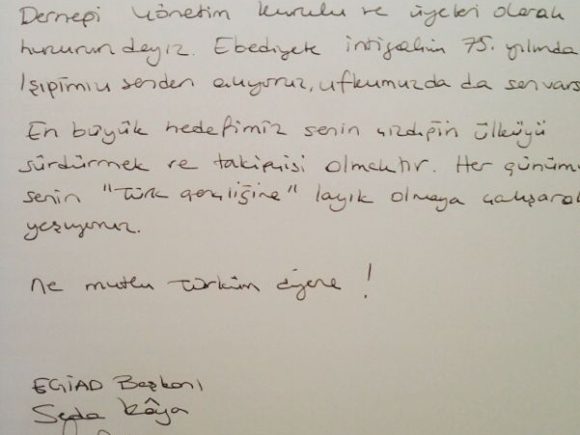 Derneği Yönetim Kurulu ve üyeleri olarak
huzurundayız. Ebediyete intişalin 75. yılında
Işığımızı senden alıyoruz, ufkumuzda da sen vars
En büyük hedefimiz senin çizdiğin ülküyü
sürdürmek ve takipçisi olmaktır. Her günümü
senin "Türk gençliğine" layık olmaya çalışarak
yaşıyoruz.
Ne mutlu Türküm diyene !
EGİAD Başkanı
Seda Kâya